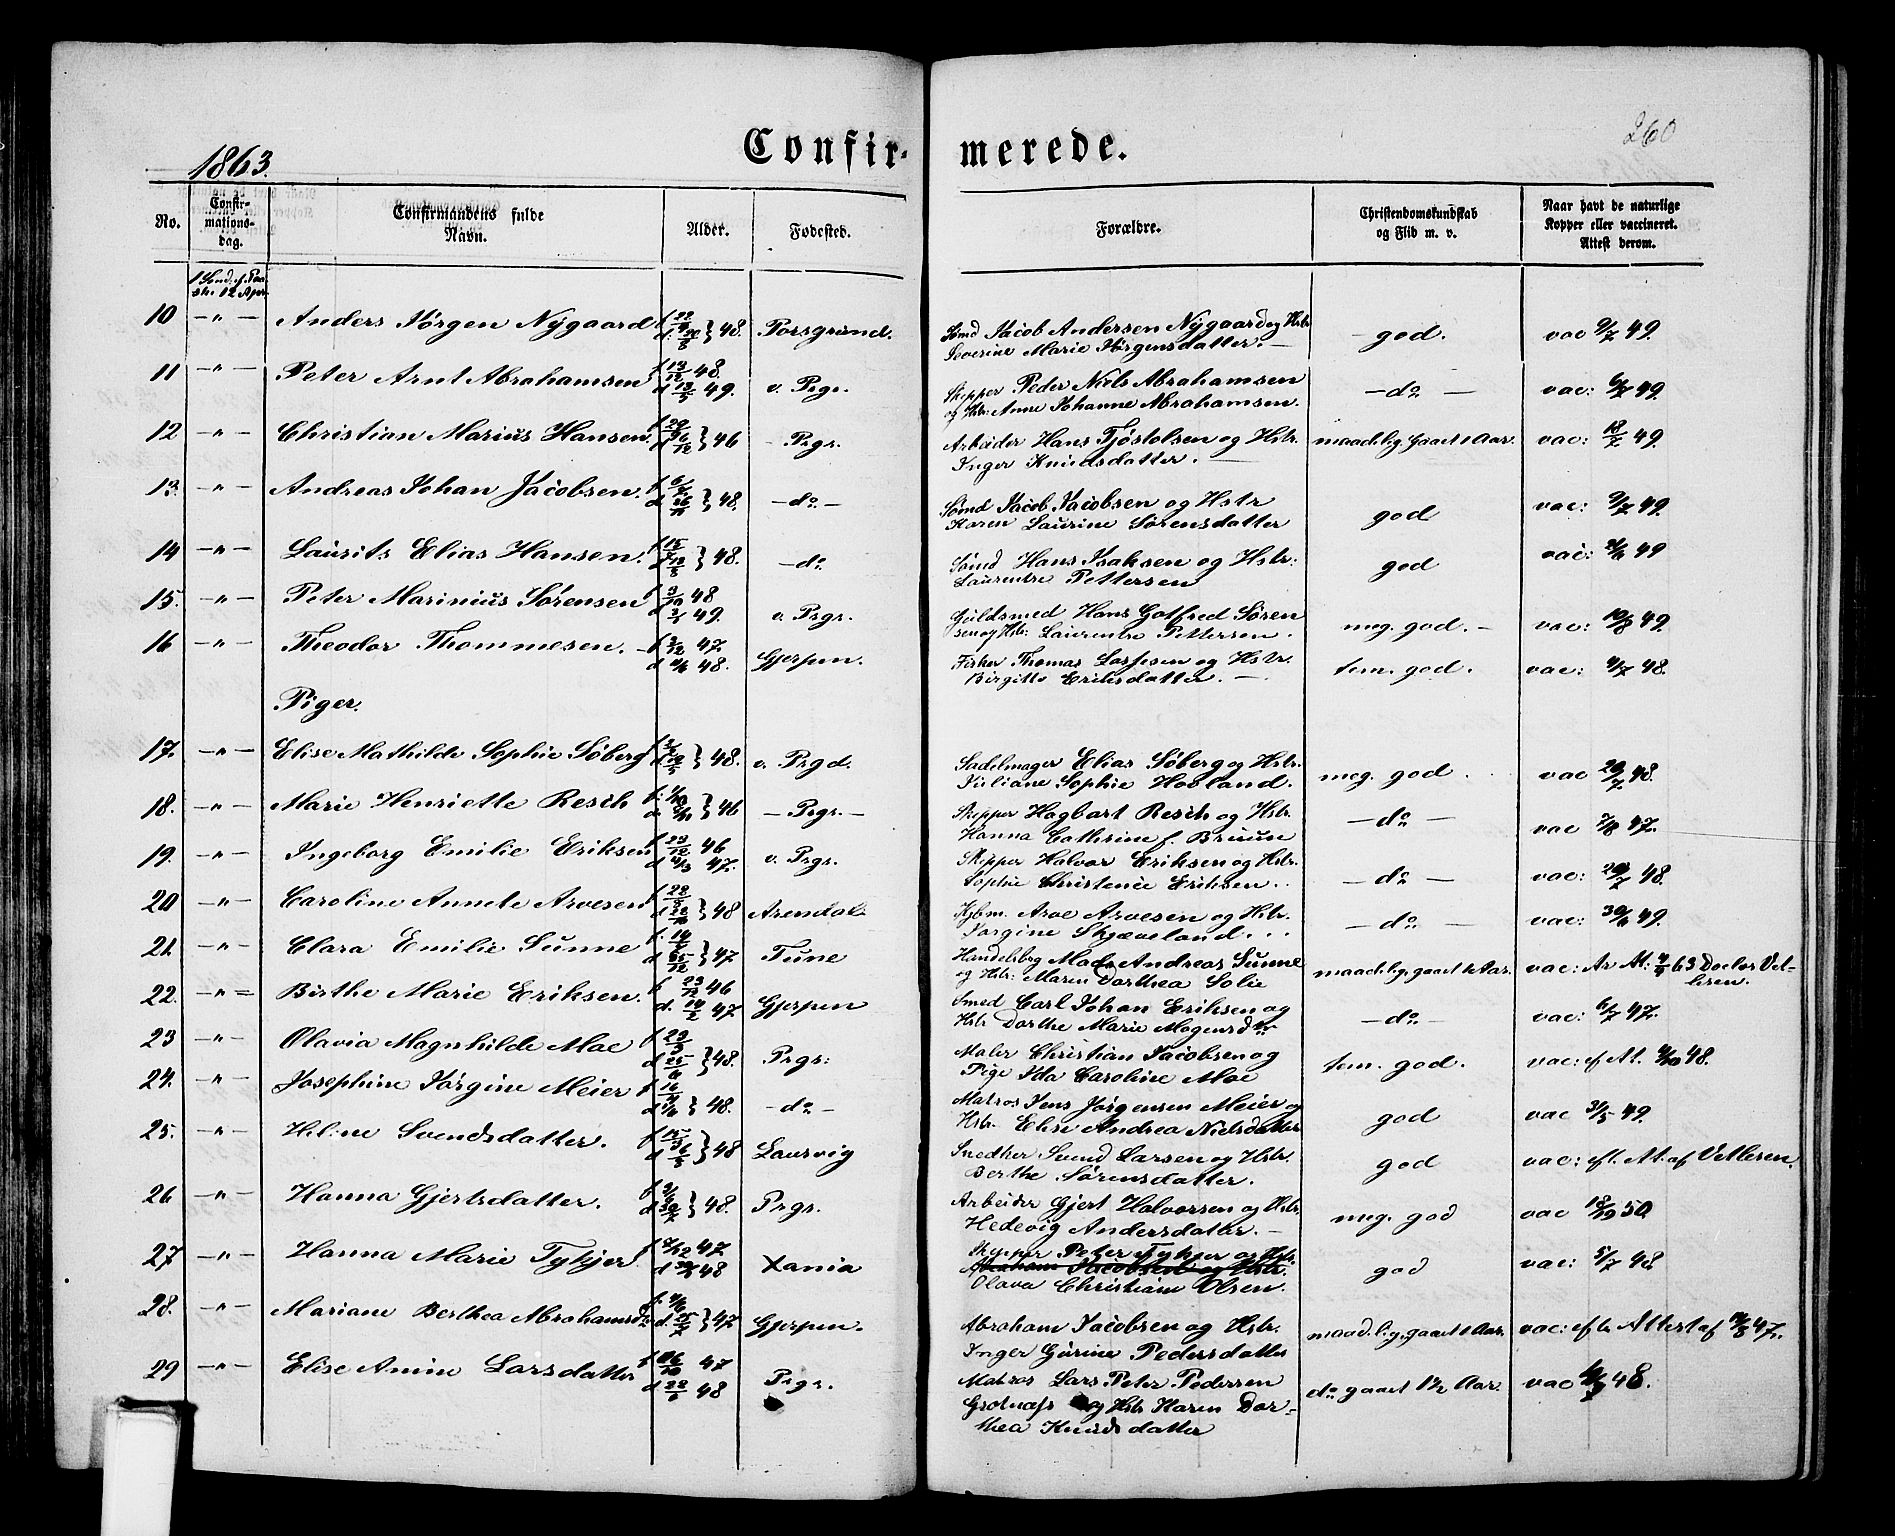 260
1863.
Confirmerede.
No.
Confirmationsdag.
Confirmandens fulde Navn.
Alder.
Fødested.
Forældre.
Christendomskundskab og Flid m. v.
Naar havt de naturlige Kopper eller vaccineret. Attest derom.
10 — " — Anders Jørgen Nygaard 48. Porsgrund. Jacob Andersen Nygaard og Hstr Severine Marie Jørgensdatter. — god. vac 9/7 49.
11 — " — Peter Arnt Abrahamsen f 13/12 48. d 13/5 49. v. Prgr. Skipper Peder Niels Abrahamsen og Hstr: Anne Johanne Abrahamsen. — do — vac: 6/7 49.
12 — " — Christian Marius Hansen. 46 - Prgr. Arbeider Hans Tjøstolsen og Hstr. Inger Knudsdatter. — maadelig, gaaet 1 Aar. vac: 18/7 49.
13. — " — Andreas Johan Jacobsen. 48. — do — Jacob Jacobsen og Hstr Karen Laurine Sørensdatter god vac: 9/7 49.
14 — " — Laurits Elias Hansen. 48. — do. Hans Isaksen og Hstr: Laurentze Pettersen god vac: 49
15. — " — Peter Marinius Sørensen f 3/10 48 d 3/1 49. v. Prgr. Guldsmed Hans Gotfred Sørensen og Hstr: Laurentze Pettersen. meg. god. — vac: 10/8 49.
16 — " — Theodor Thommesen. f 3/12 47 48. Gjerpen. Fisker Thomas Larssen og Hstr. Birgitte Eriksdatter. — tem. god. vac: 4/7 48.
Piger.
17. — " — Elise Mathilde Sophie Søberg 48. v. Prgd. Sadelmager Elias Søberg og Hstr. Juliane Sophie Hovland. meg. god. vac 20/7 48.
18. — " — Marie Henriette Resch 46 — Prgr. — Skipper Hagbart Resch og Hstr. Hanna Cathrine f. Bruun — do — vac 7/8 47.
19. — " — Ingeborg Emilie Eriksen f 23/12 46 47. v. Prgr. Skipper Halvor Eriksen og Hstr. Sophie Christence Eriksen. — do — vac: 20/7 48.
20 — " — Caroline Annete Arvesen 48 Arendal Kjbm. Arve Arvesen og Hstr. Jorgine Skjæveland. — do — vac: 30/6 49.
21. — " — Clara Emilie Sunne 47 Tune Handelsbg Mads Andreas Sunne og Hstr: Maren Dorthea Solie maadelig, gaaet 1 Aar. vac: 63 Doctor Vetlesen.
22. — " = Birthe Marie Eriksen. f 23/12 46 d. 14/2 47 Gjerpen Smed Carl Johan Eriksen og Hstr Dorthe Marie Mogensdtr — do — vac: 6/7 47.
23 — " — Olavia Magnhilde Moe 48. Prgr: Maler Christian Jacobsen og Pige Ida Caroline Moe tem. god. vac: ef At. 48.
24. — " — Josephine Jørgine Meier 48. — do — Matros Jens Jørgensen Meier og Hstr. Elise Andrea Nielsdatter god vac 31/5 49.
25. — " — Heline Svendsdatter. 48 Laurvig Snedker Svend Larsen og Hstr. Berthe Sørensdatter. god vac: eft. At. af Vetlesen.
26 — " — Hanna Gjertsdatter. 48. Prgr. Arbeider Gjert Halvorsen og Hstr. Hedevig Andersdatter. — meg. god vac 50
27 — " — Hanna Marie Tykjer 47 48 Xania Skipper Peter Tykjer og Hstr. Abraham Jacobsen og Hstr. Olava Christiane Olsen. god vac: 5/7 48
28. — " — Mariane Berthea Abrahamsdtr 47 Gjerpen. Abraham Jacobsen og Hstr. Inger Gurine Pedersdatter maadelig, gaaet 1 Aar. vac: efter Attest af 47.
29 — " — Elise Amine Larsdatter 47 48 Prgr. Matros Lars Peter Pedersen Grotnæss og Hstr Karen Dorthea Knudsdatter do gaaet 1½ Aar. vac 48.